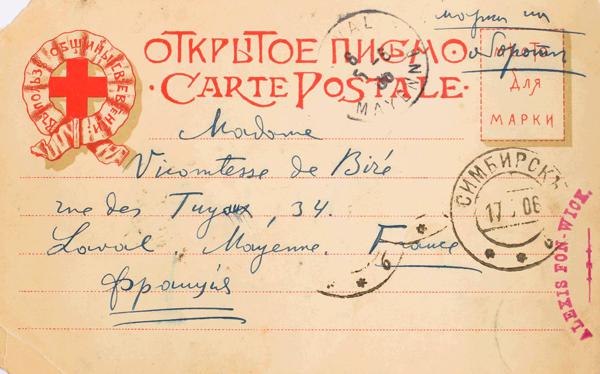 марки на
обороте
ВЪ ПОЛЬЗУ ОБЩИНЫ СВ. ЕВГЕНІИ
ОТКРЫТОЕ ПИСЬМО
CARTE POSTALE
ДЛЯ
МАРКИ
LAVAL
MAYENNE
Madame
Vicomtesse de Biré
rue des Tuyaux, 34.
Laval. Mayenne. France
Франція
СИМБИРСКЪ
17 06
6
ALEXIS FON-WICK.